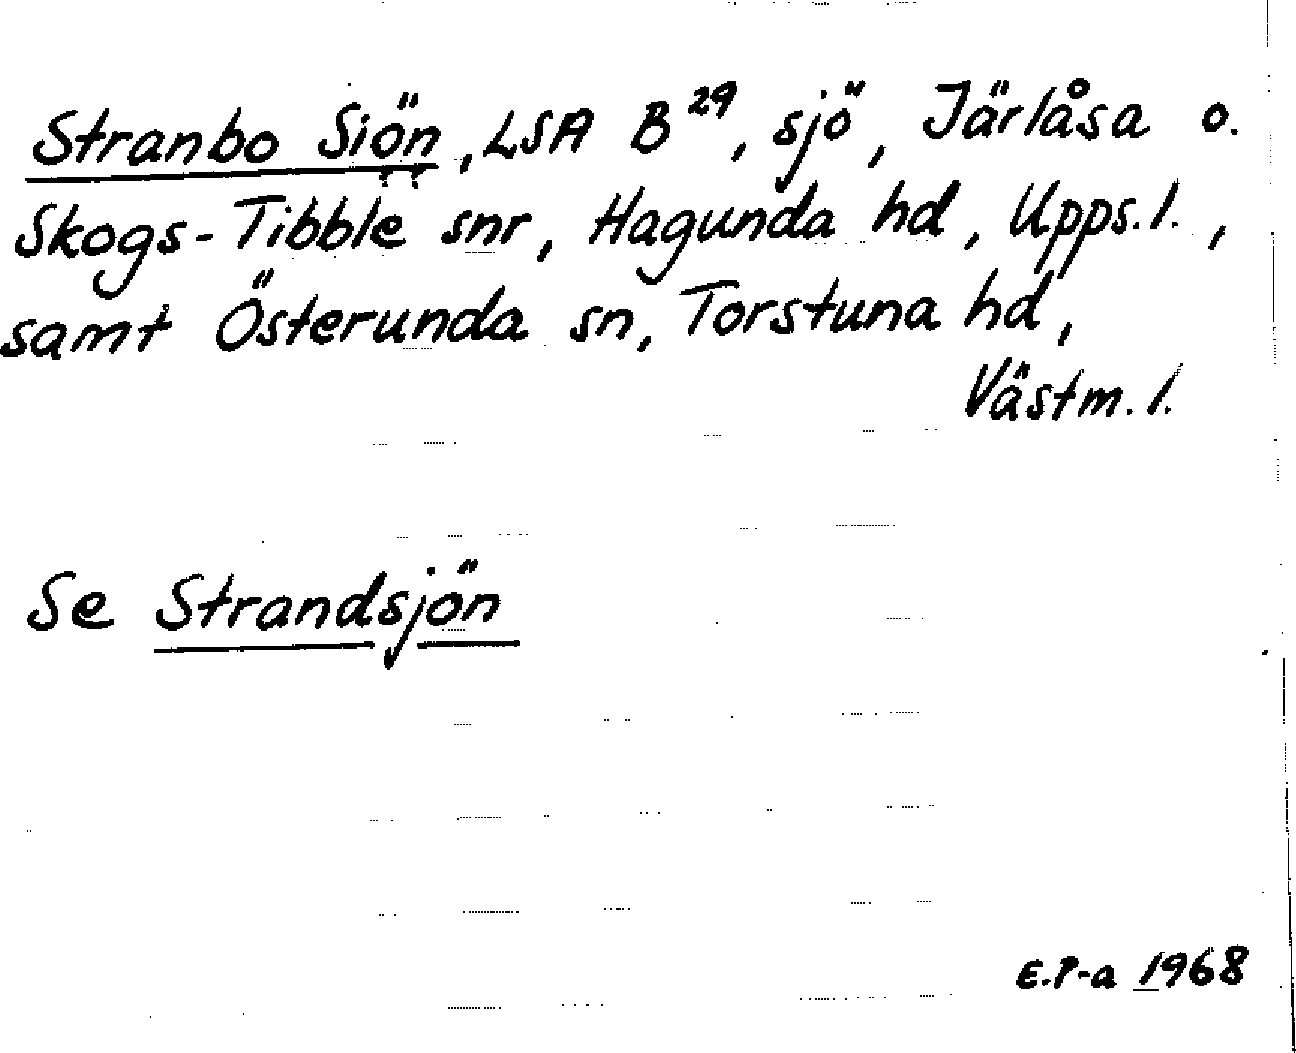 Stranbo Siön, LSA B²⁹, sjö, Järlåsa o.
Skogs-Tibble snr, Hagunda hd, Upps. l.,
samt Österunda sn, Torstuna hd,
Västm. l.
Se Strandsjön
E.P-a 1968